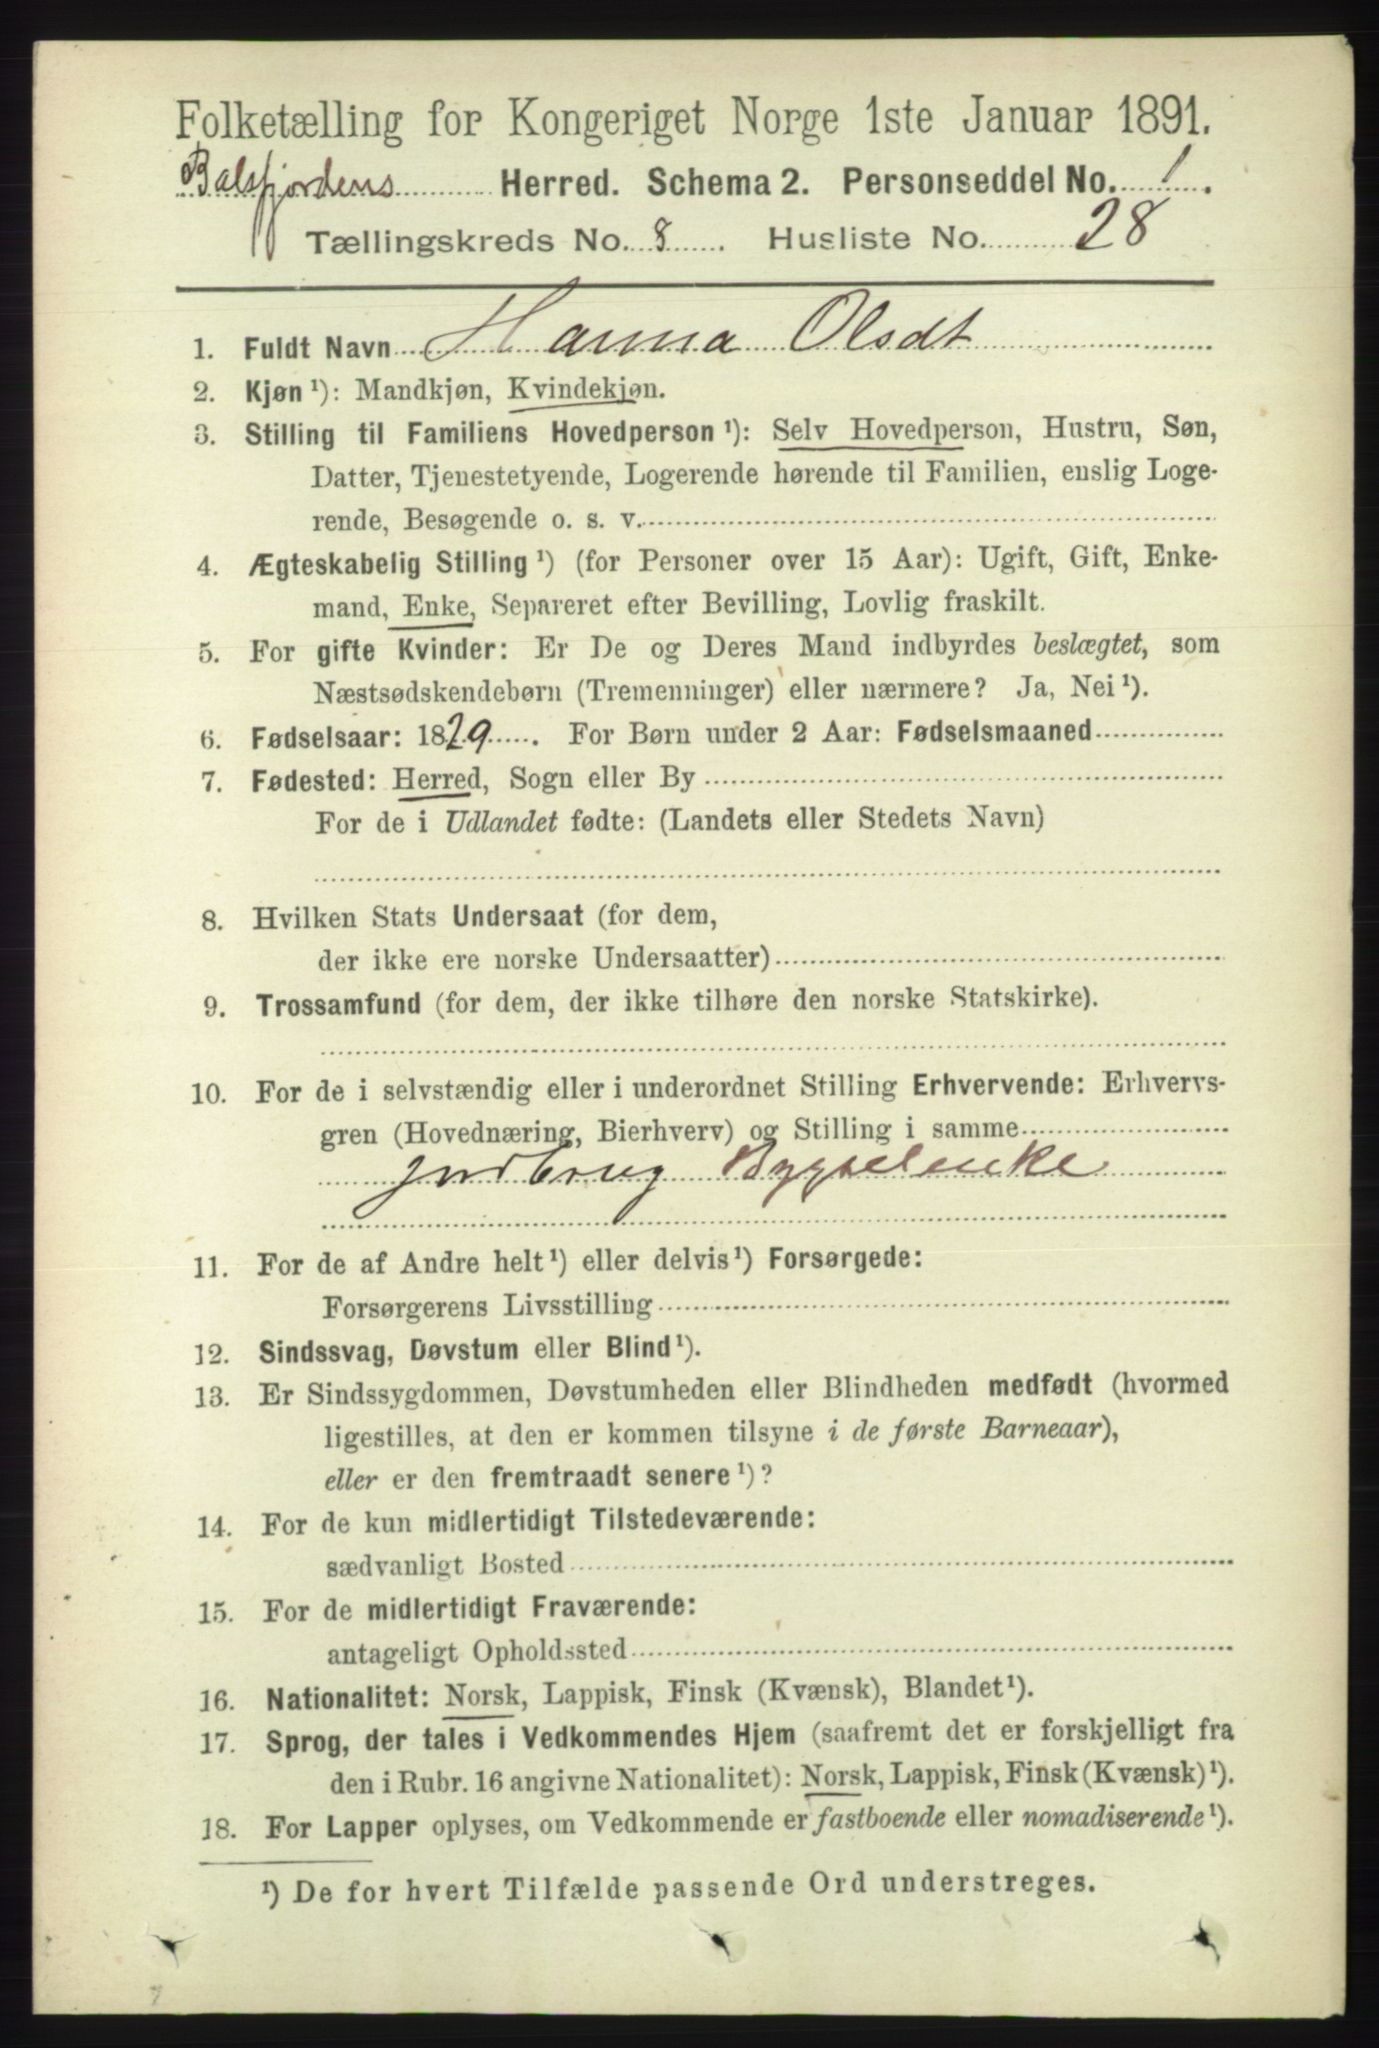 Folketælling for Kongeriget Norge 1ste Januar 1891.
Balsfjordens Herred. Schema 2. Personseddel No. 1.
Tællingskreds No. 8. Husliste No. 28
1. Fuldt Navn Hanna Olsdt
2. Kjøn ¹): Mandkjøn, Kvindekjøn.
3. Stilling til Familiens Hovedperson ¹): Selv Hovedperson, Hustru, Søn,
Datter, Tjenestetyende, Logerende hørende til Familien, enslig Loge-
rende, Besøgende o. s. v.
4. Ægteskabelig Stilling ¹) (for Personer over 15 Aar): Ugift, Gift, Enke-
mand, Enke, Separeret efter Bevilling, Lovlig fraskilt.
5. For gifte Kvinder: Er De og Deres Mand indbyrdes beslægtet, som
Næstsødskendebørn (Tremenninger) eller nærmere? Ja, Nei ¹).
6. Fødselsaar: 1829. For Børn under 2 Aar: Fødselsmaaned
7. Fødested: Herred, Sogn eller By
For de i Udlandet fødte: (Landets eller Stedets Navn)
8. Hvilken Stats Undersaat (for dem,
der ikke ere norske Undersaatter)
9. Trossamfund (for dem, der ikke tilhøre den norske Statskirke).
10. For de i selvstændig eller i underordnet Stilling Erhvervende: Erhvervs-
gren (Hovednæring, Bierhverv) og Stilling i samme
Jordbrug Bygselenke
11. For de af Andre helt ¹) eller delvis ¹) Forsørgede:
Forsørgerens Livsstilling
12. Sindssvag, Døvstum eller Blind ¹).
13. Er Sindssygdommen, Døvstumheden eller Blindheden medfødt (hvormed
ligestilles, at den er kommen tilsyne i de første Barneaar),
eller er den fremtraadt senere ¹)?
14. For de kun midlertidigt Tilstedeværende:
sædvanligt Bosted
15. For de midlertidigt Fraværende:
antageligt Opholdssted
16. Nationalitet: Norsk, Lappisk, Finsk (Kvænsk), Blandet ¹).
17. Sprog, der tales i Vedkommendes Hjem (saafremt det er forskjelligt fra
den i Rubr. 16 angivne Nationalitet): Norsk, Lappisk, Finsk (Kvænsk) ¹).
18. For Lapper oplyses, om Vedkommende er fastboende eller nomadiserende ¹).
¹) De for hvert Tilfælde passende Ord understreges.